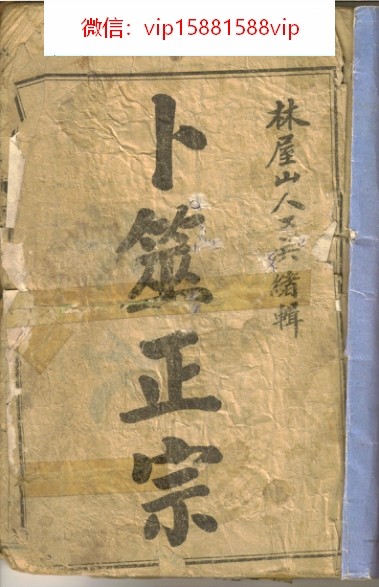 微信：vip15881588vip
林屋山人王洪緒輯
卜筮正宗